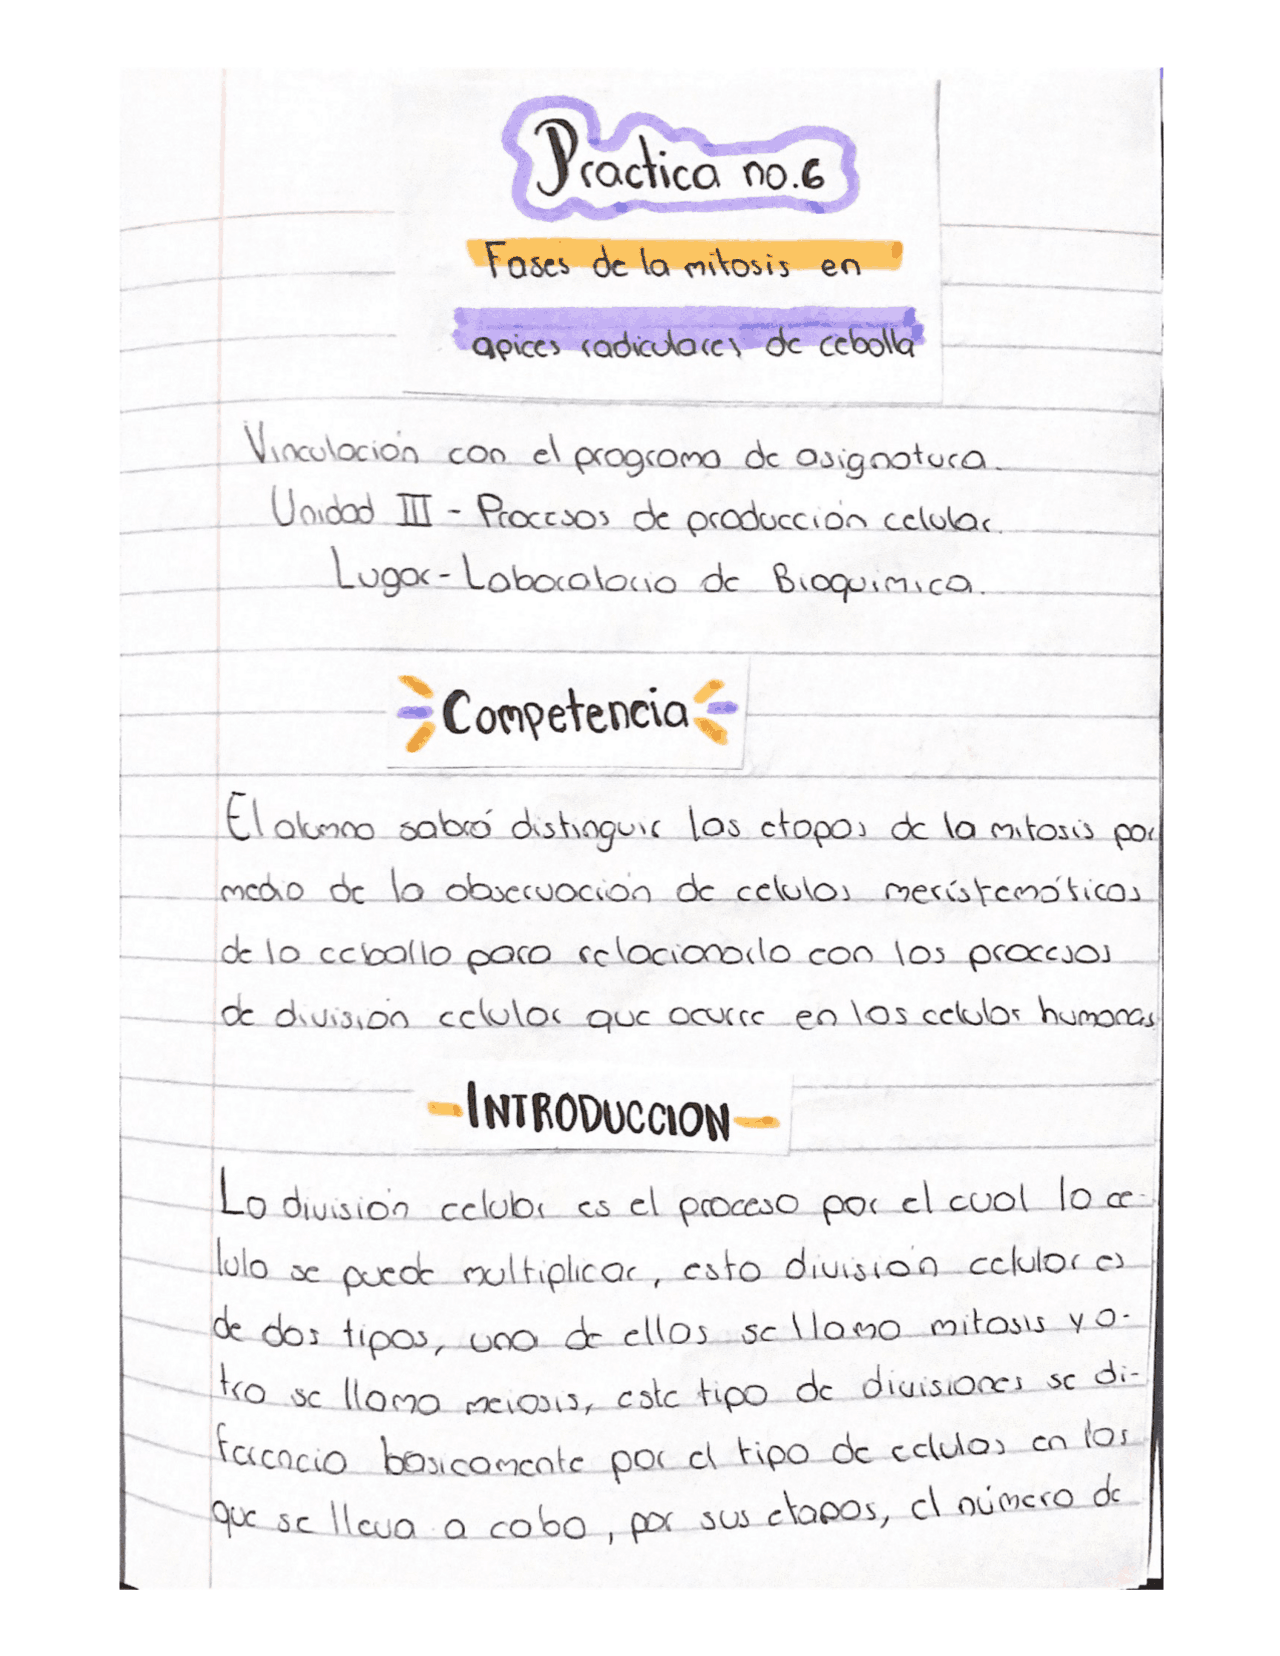 Practica no.6
Fases de la mitosis en
apices radiculares de cebolla
Vinculación con el programa de asignatura.
Unidad III - Procesos de producción celular.
Lugar - Laboratorio de Bioquimica.
Competencia
El alumno sabrá distinguir las etapas de la mitosis por
medio de la observación de celulas meristemáticas
de la cebolla para relacionarlo con los procesos
de división celular que ocurre en las celulas humanas
-INTRODUCCION-
La división celular es el proceso por el cual la ce-
lula se puede multiplicar, esta división celular es
de dos tipos, uno de ellos se llama mitosis y o-
tro se llama meiosis, este tipo de divisiones se di-
ferencia basicamente por el tipo de celulas en las
que se lleva a cabo, por sus etapas, el número de